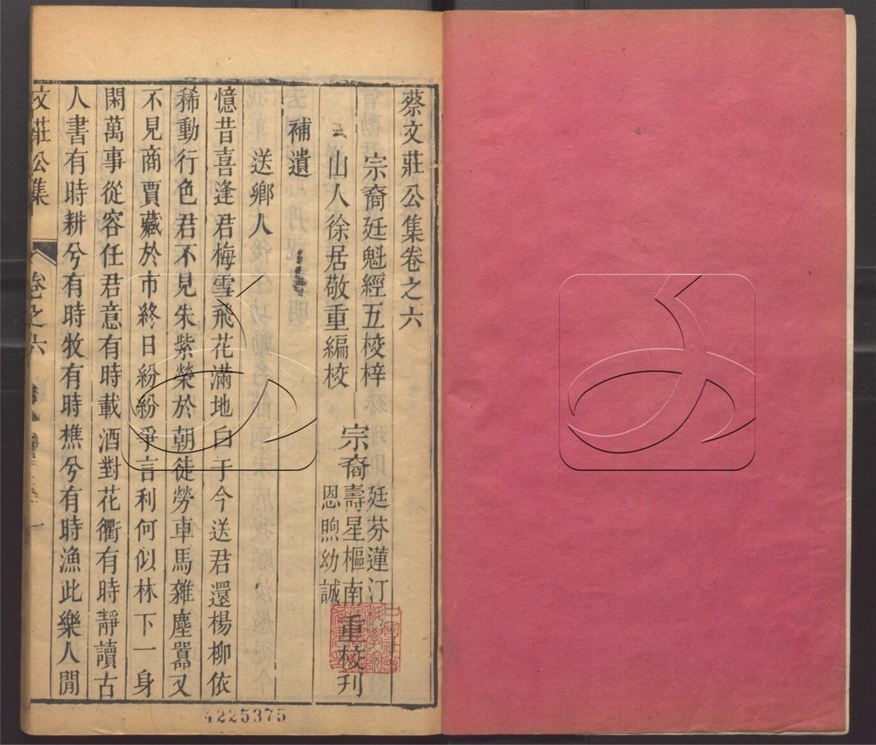 蔡文莊公集卷之六
宗裔廷魁經五校梓
山人徐居敬重編校
宗裔
廷芬蓮汀
壽星樞南
恩煦幼誠
重校刊
補遺
送鄉人
憶昔喜逢君梅雪飛花滿地白于今送君還楊柳依
稀動行色君不見朱紫榮於朝徒勞車馬雜塵囂又
不見商賈藏於市終日紛紛爭言利何似林下一身
閑萬事從容任君意有時載酒對花衢有時靜讀古
人書有時耕兮有時牧有時樵兮有時漁此樂人間
文莊公集
卷之六
一
4225375